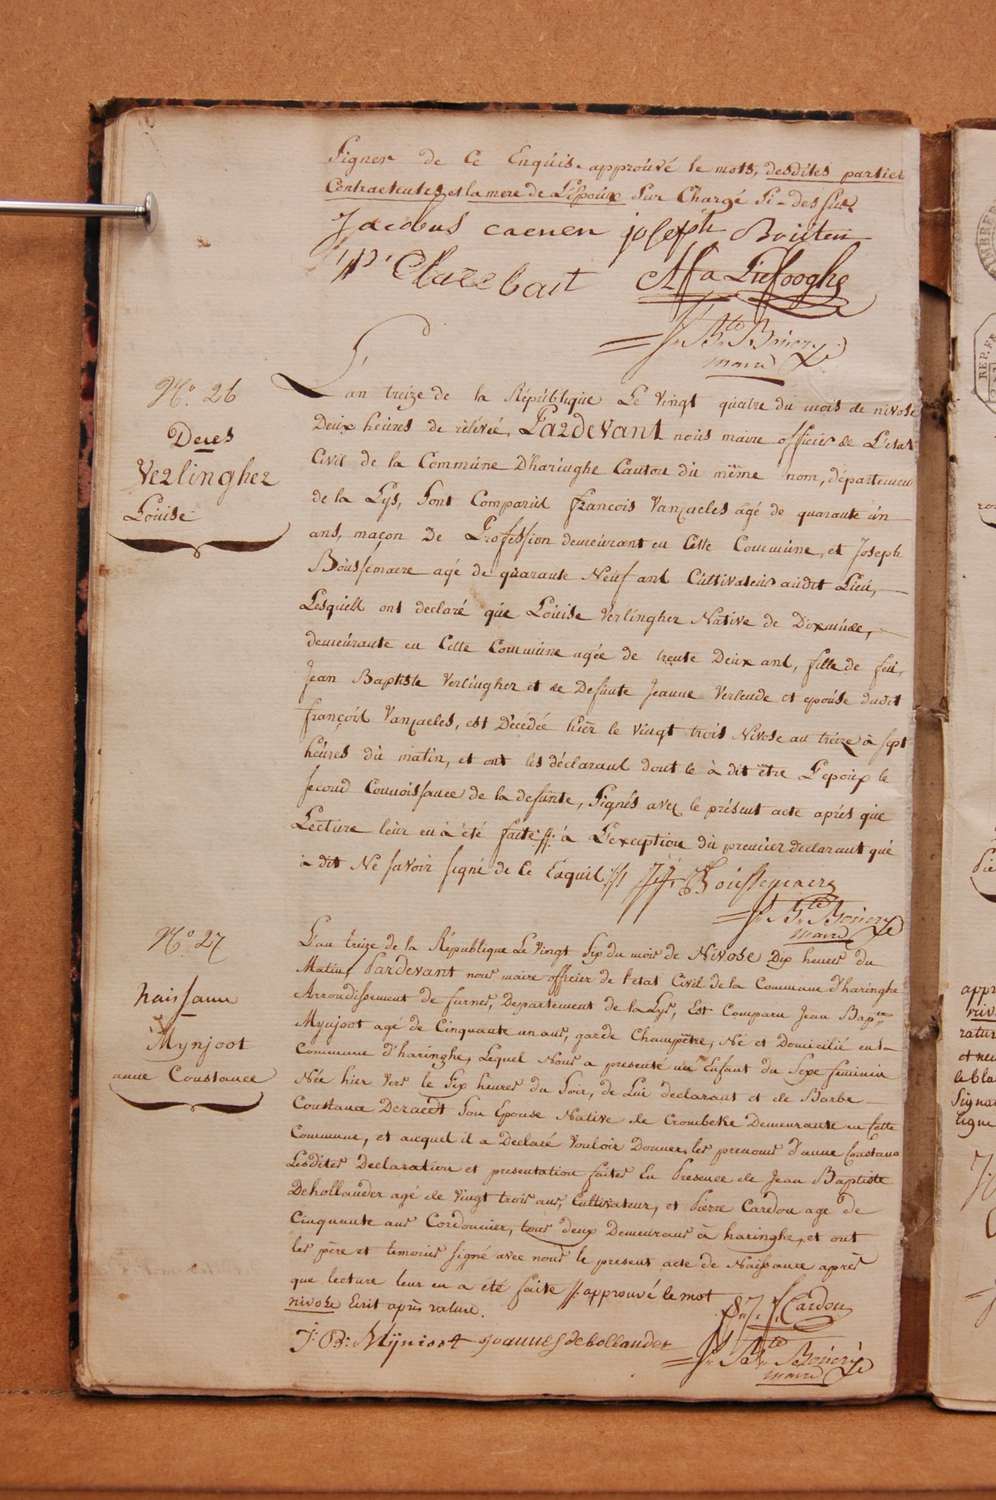 Signer de Ce Enquis. approuvé le mots, desdites parties
Contractentes, et la mere de L'Epoux Sur Chargé Si-dessus
Jacobus caenen joseph Bouten
P. Clarebout
A F a Liefooghe
J. Bte Boiery
maire
N.o 26
Deces
Verlingher
Louise
L'an treize de la République Le Vingt quatre du mois de nivose
Deux heures de rélévée, Pardevant nous maire officier de L'etat
Civil de la Commune D'haringhe Canton du même nom, département
de la Lys, Sont Comparus francois Vanzacles agé de quarante un
ans, maçon de Profession demeurant en Cette Commune, et Joseph
Boussemaere agé de quarante Neuf ans Cultivateur audit Lieu,
Lesquels ont declaré que Louise Verlingher Native de Dixmude,
demeurante en Cette Commune agée de trente Deux ans, fille de feu
Jean Baptiste Verlingher et de Defunte Jeanne Verleude et epouse dudit
françois Vanzacles, est Décédée hier le vingt trois Nivose an treize à sept
heures du matin, et ont les déclarans dont le à dit être L'epoux le
second Connoissance de la defunte, Signés avec le présent acte aprés que
Lecture leur en à été faite // à L'exception du premier declarant qui
à dit Ne savoir signé de Ce Enquis //
J. F. Boussemaere
J. Bte Boiery
maire
N.o 27
Naissance
Mynjoot
anne Constance
L'an treize de la République Le Vingt Six du mois de Nivose Dix heures du
Matin, Pardevant nous maire officier de l'etat Civil de la Commune d'haringhe
Arrondissement de furnes, Département de la Lys, Est Comparu Jean Baptte
Mynjoot agé de Cinquante un ans, garde Champêtre, Né et Domicilié en
Commune d'haringhe, Lequel Nous a presenté un Enfant du Sexe feminin
Née hier vers le Six heures du Soir, de Lui declarant et de Barbe
Constance Deraedt Son Epouse Native de Crombeke Demeurante en Cette
Commune, et auquel il a Declaré Vouloir Donner les prenoms d'anne Constance
Lesdites Declaration et presentation faites En Presence de Jean Baptiste
Dehollander agé de Vingt trois ans, Cultivateur, et Pierre Cardon agé de
Cinquante ans Cordonnier, tous deux Demeurans à haringhe, et ont
les père et temoins signé avec nous le present acte de Naissance après
que lecture leur en a été faite // approuvé le mot
nivose Ecrit après rature.
J. Cardon
J: B: Mynioot joannes de hollander
J. Bte Boiery
maire